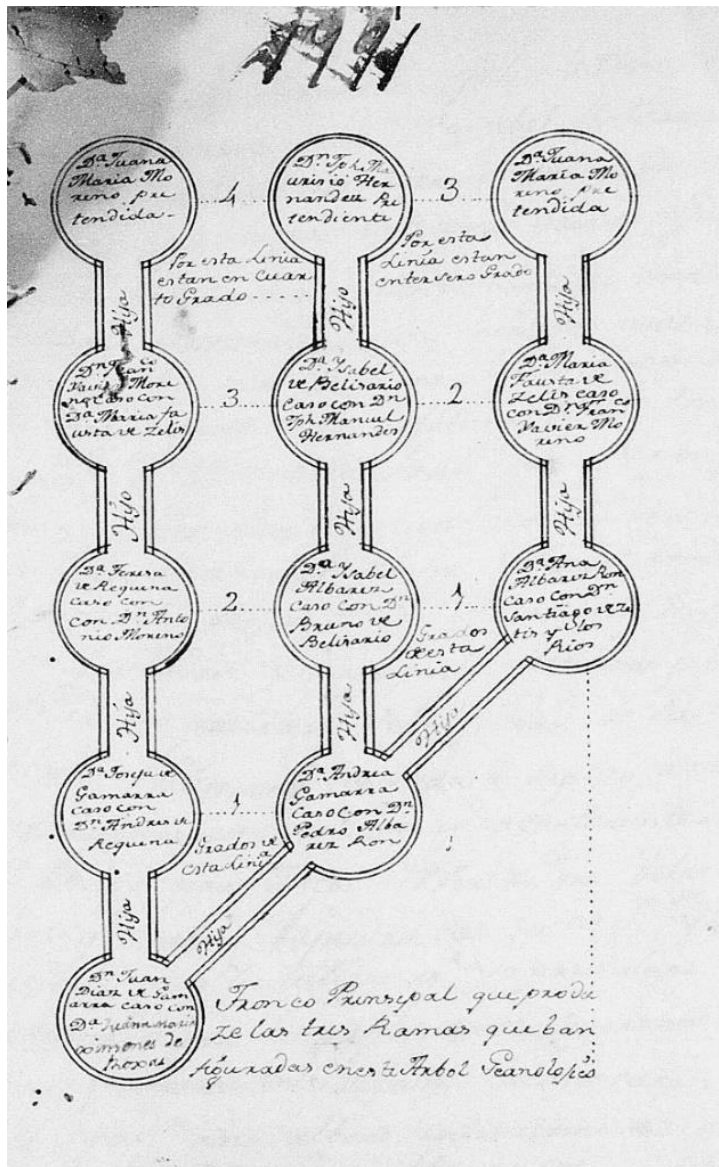 Dª Juana
Maria Mo
reno pre
tendida
4
Dn Jph Ma
urisio Her
nandez Pre
tendiente
3
Dª Juana
Maria Mo
reno pre
tendida
Por esta Linia
estan en Cuar
to Grado
Por esta
Linia estan
entersero Grado
Hija
Hijo
Hija
Dn Franco
Xavier More
no caso con
Dª Maria fa
usta de Zelis
3
Dª Ysabel
de Belisario
Caso con Dn
Jph Manuel
Hernandes
2
Dª Maria
Fausta de
Zelis caso
con Dn Franco
Xavier Mo
reno
Hijo
Hija
Hija
Dª Teresa
de Requena
Caso con
con Dn Anto
nio Moreno
2
Dª Ysabel
Albarez
Caso con Dn
Bruno de
Belisario
1
Dª Ana
Albarez Ron
Caso con Dn
Santiago de Ze
lis y Rios
Grados
de esta
Linia
Hija
Hija
Hija
Dª Josefa de
Gamarra
Caso con
Dn Andres de
Requena
1
Dª Andrea
Gamarra
Caso con Dn
Pedro Alba
rez Ron
Grados de
esta Linia
Hija
Hija
Dn Juan
Diaz de Gam
arra caso con
Dª Juana Maria
ximenes de
Roxas
Tronco Prinsipal que produ
ze las tres Ramas que ban
figuradas en este Arbol Geanolosico